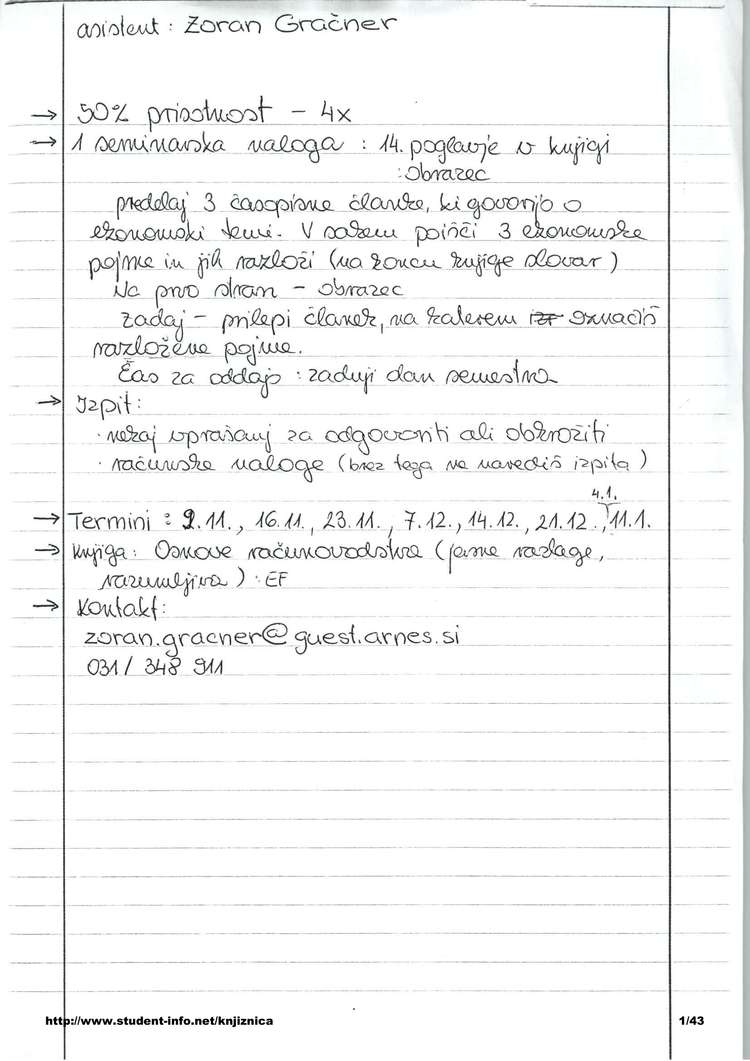 asistent : Zoran Gračner
→ 50% prisotnost - 4x
→ 1 seminarska naloga : 14. poglavje v knjigi
: obrazec
predelaj 3 časopisne članke, ki govorijo o
ekonomski temi. V vsakem poišči 3 ekonomske
pojme in jih razloži (na koncu knjige slovar)
Na prvo stran - obrazec
zadaj - prilepi članek, na katerem označiš
razložene pojme.
Čas za oddajo : zadnji dan semestra
→ Izpit:
· nekaj vprašanj za odgovoriti ali obkrožiti
· računske naloge (brez tega ne narediš izpita)
4.1.
→ Termini : 9.11., 16.11., 23.11., 7.12., 14.12., 21.12., 11.1.
→ Knjiga: Osnove računovodstva (jasne razlage,
razumljiva) · EF
→ Kontakt:
zoran.gracner@guest.arnes.si
031/ 348 911
http://www.student-info.net/knjiznica
1/43